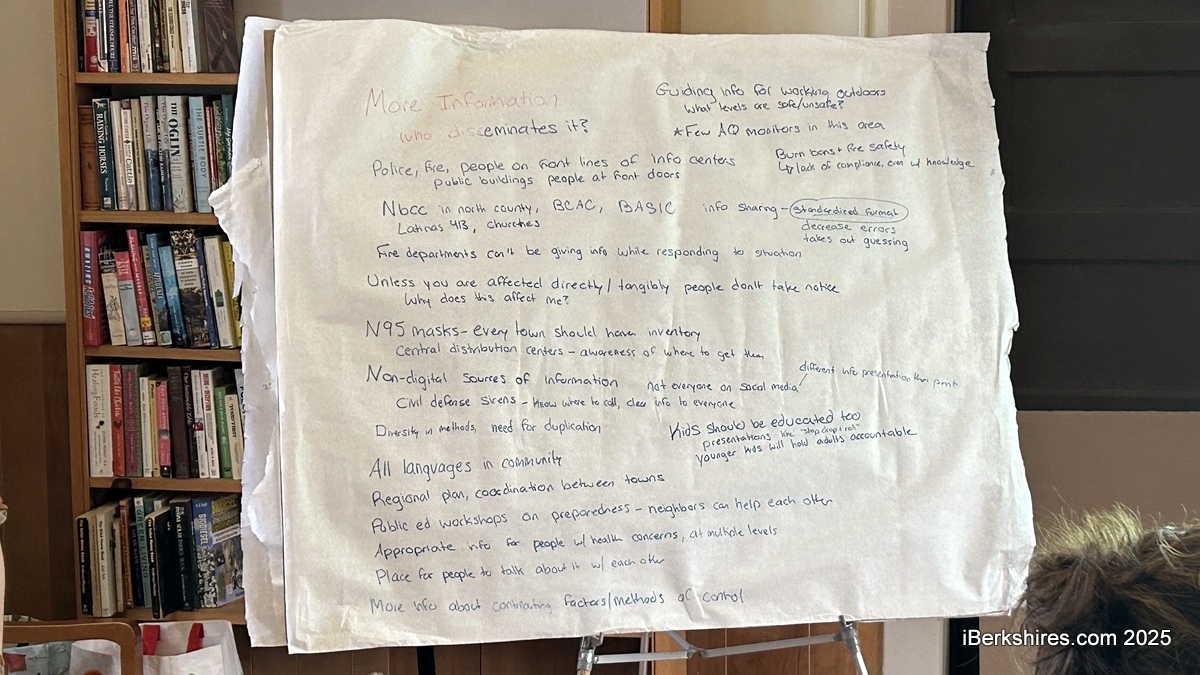 More Information
who disseminates it?
Police, fire, people on front lines of info centers
public buildings people at front doors
Nbcc in north county, BCAC, BASIC
Latinas 413, churches
info sharing - standardized format
decrease errors
takes out guessing
Fire departments can't be giving info while responding to situation
Unless you are affected directly/tangibly people don't take notice
Why does this affect me?
N95 masks - every town should have inventory
Central distribution centers - awareness of where to get them
Non-digital sources of information
not everyone on social media
different info presentation than print
Civil defense sirens - know where to call, clear info to everyone
Diversity in methods, need for duplication
All languages in community
Regional plan, coordination between towns
Public ed workshops on preparedness - neighbors can help each other
Appropriate info for people w/ health concerns, at multiple levels
Place for people to talk about it w/ each other
More info about contributing factors/methods of control
Guiding info for working outdoors
what levels are safe/unsafe?
*Few AQ monitors in this area
Burn bans + fire safety
↳ lack of compliance, even w/ knowledge
Kids should be educated too
presentations like "stop drop + roll"
younger kids will hold adults accountable
RAISING HORSES
THE OGLIN
THE SUBTLE BODY
Healing Foods
BIODIESEL
iBerkshires.com 2025